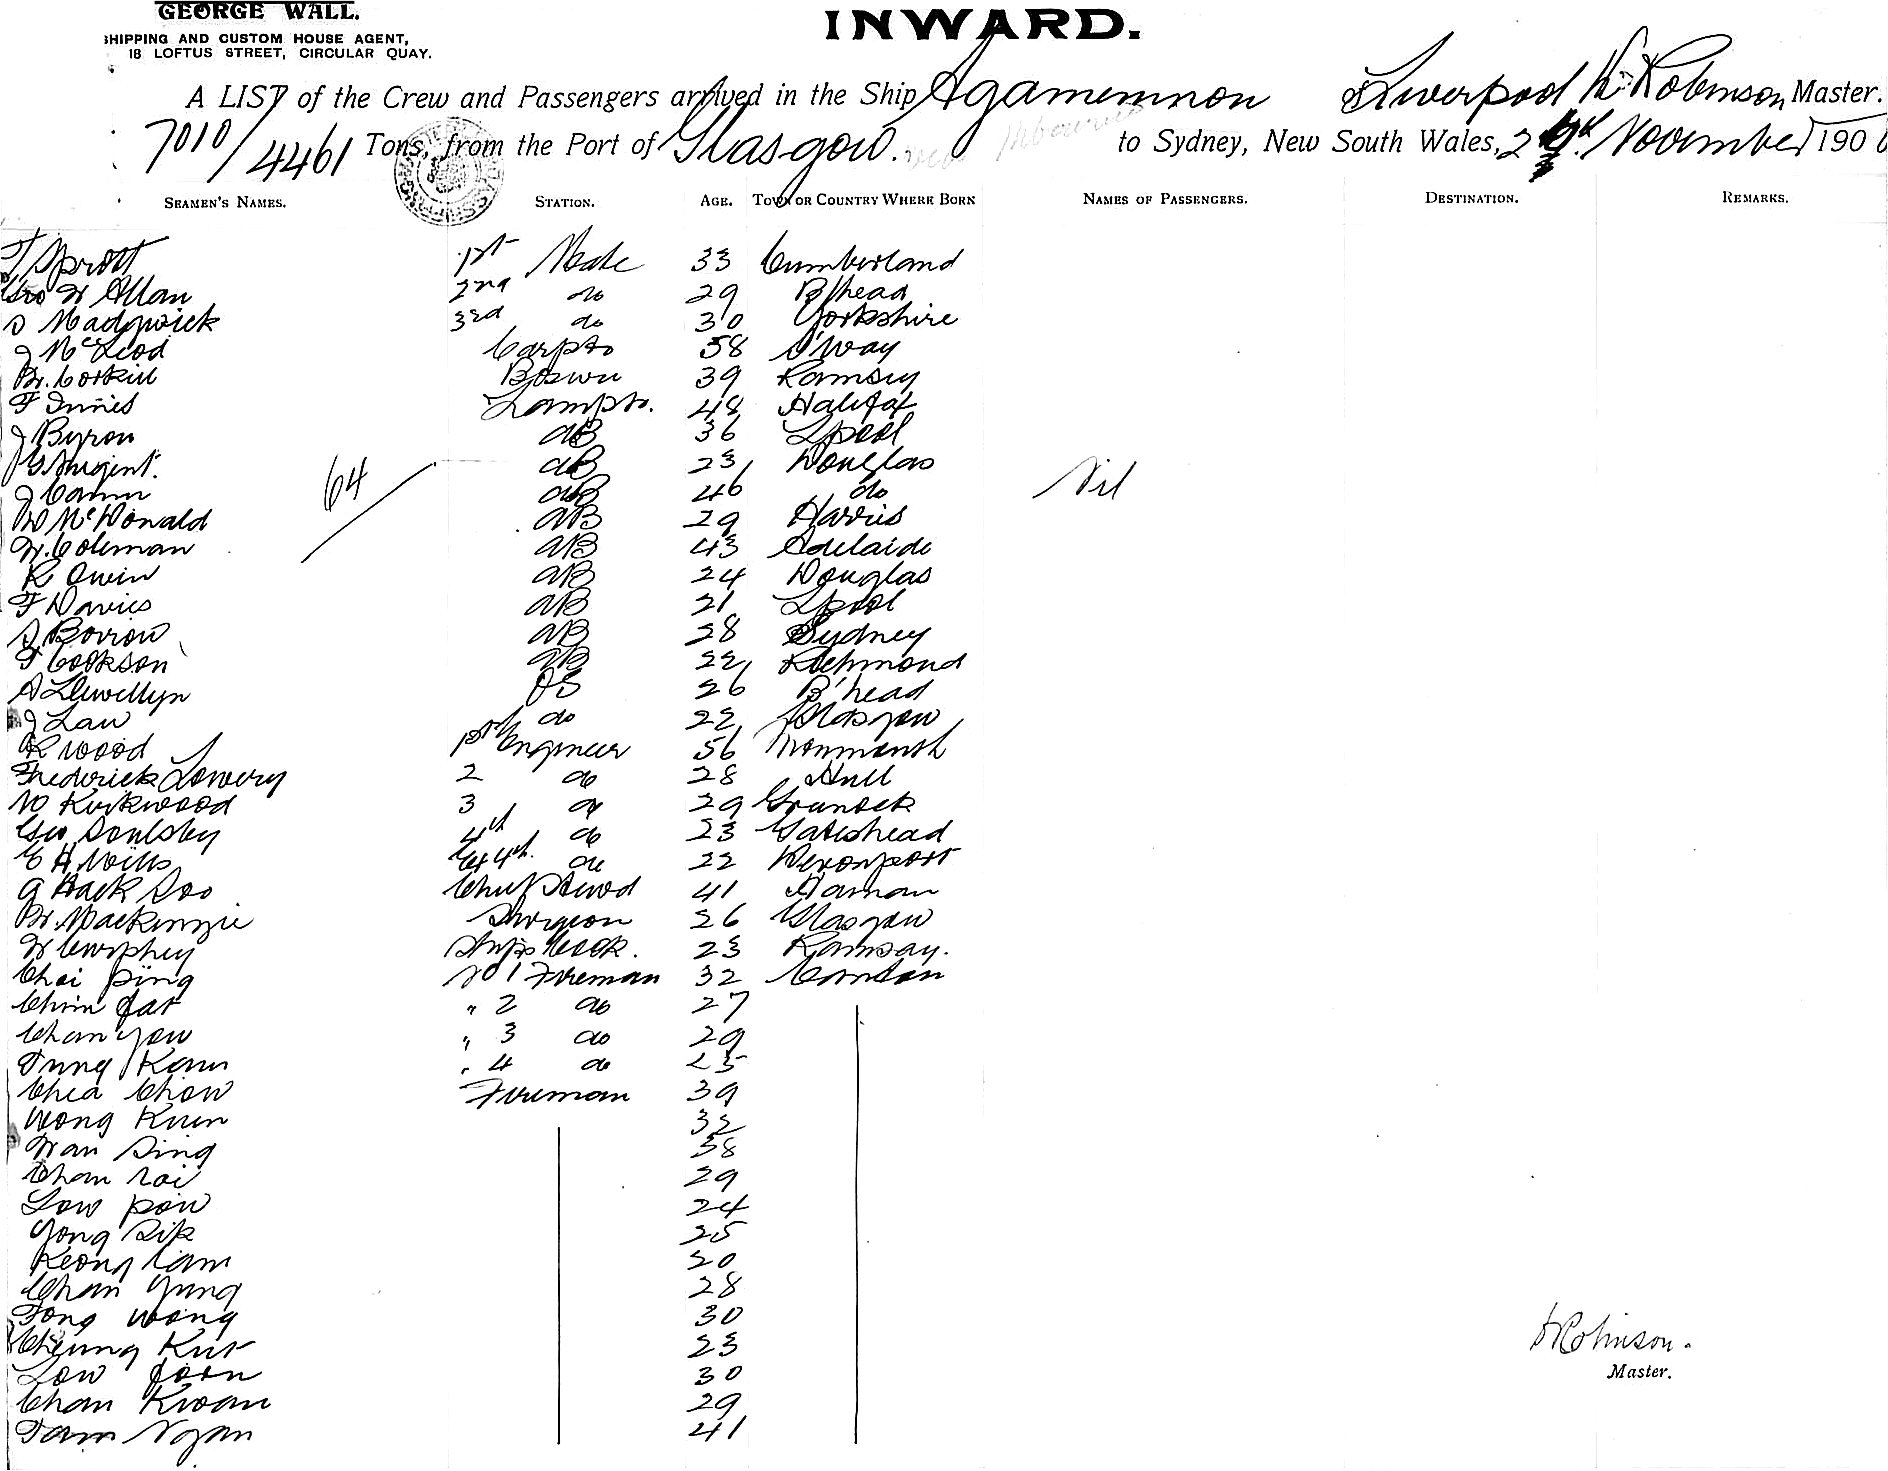 GEORGE WALL.
SHIPPING AND CUSTOM HOUSE AGENT,
18 LOFTUS STREET, CIRCULAR QUAY.
INWARD.
A LIST of the Crew and Passengers arrived in the Ship Agamemnon of Liverpool Robinson Master.
7010/4461 Tons, from the Port of Glasgow. to Sydney, New South Wales, November 190
SEAMEN'S NAMES. STATION. AGE. TOWN OR COUNTRY WHERE BORN NAMES OF PASSENGERS. DESTINATION. REMARKS.
T Sprott 1st Mate 33 Cumberland
Geo W Allan 2nd do 29 B'head
S Madgwick 3rd do 30 Yorkshire
J McLeod Carptr 58 S'way
Wm. Corkill Boswn 39 Ramsey
F Innes Lamptr. 48 Halifax
J Byron AB 36 Lpool
J Sargent. AB 23 Douglas
64
J Cann AB 46 do Nil
D McDonald AB 29 Harris
W. Coleman AB 43 Adelaide
R Owen AB 24 Douglas
F Davies AB 21 Lpool
S Borrow AB 28 Sydney
F Cookson AB 22 Richmond
A Llewellyn OS 26 B'head
J Law do 22 Glasgow
R Wood 1st Engineer 56 Monmouth
Frederick Lowery 2 do 28 Hull
W Kirkwood 3 do 29 Greenock
Geo Soulsby 4th do 23 Gateshead
E H Wills Ex 4th. do 22 Devonport
A Hack Soo Chief Stwd 41 Hainan
Mackenzie Surgeon 26 Glasgow
W Curphey Ships Cook. 23 Ramsay.
Choi Ping No 1 Fireman 32 Canton
Chim Fat " 2 do 27
Chan You " 3 do 29
Tung Kam " 4 do 25
Chea Chow Fireman 39
Wong Kum 32
Wan Sing 38
Chan Loi 29
Low Pow 24
Yong Sik 25
Keong Lam 20
Chan Yung 28
Tong Wong 30
Cheung Kut 23
Low Joon 30
Chan Kwan 29
Tam Ngan 41
H Robinson.
Master.